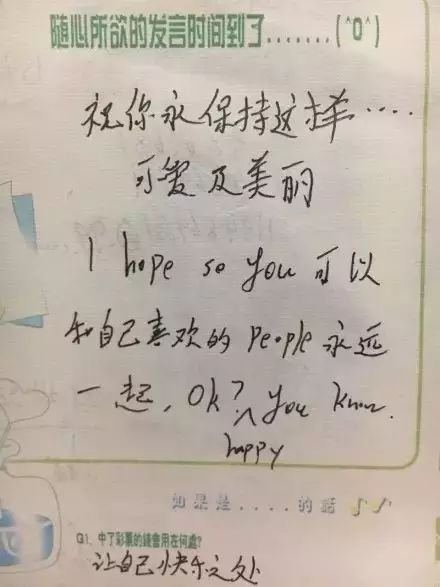 随心所欲的发言时间到了........(^0^)
祝你永保持这样....
可爱及美丽
I hope so you 可以
和自己喜欢的 people 永远
一起, Ok? ^ you know.
happy
如果是....的话
Q1. 中了彩票的錢會用在何處?
让自己快乐之处